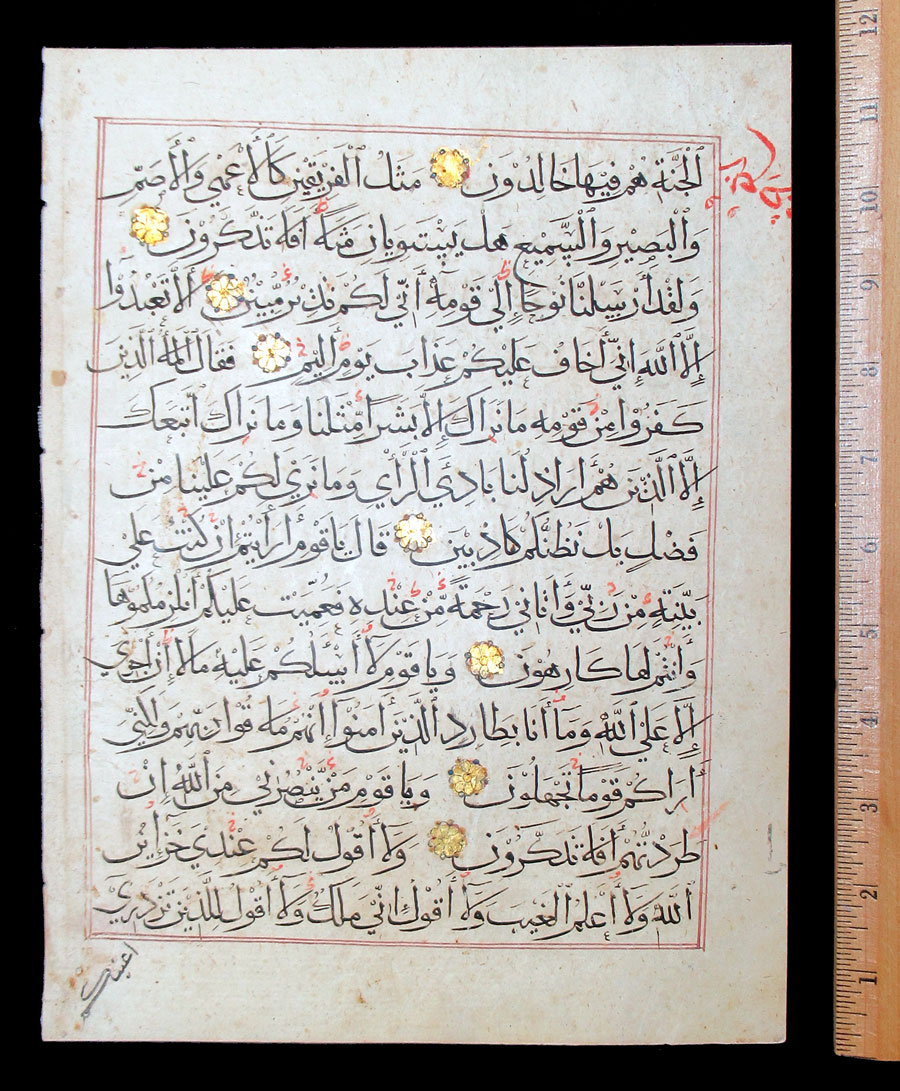 الْجَنَّةِ هُمْ فِيهَا خَالِدُونَ مَثَلُ الْفَرِيقَيْنِ كَالْأَعْمَى وَالْأَصَمِّ
وَالْبَصِيرِ وَالسَّمِيعِ هَلْ يَسْتَوِيَانِ مَثَلًا أَفَلَا تَذَكَّرُونَ
وَلَقَدْ أَرْسَلْنَا نُوحًا إِلَى قَوْمِهِ أَنِّي لَكُمْ نَذِيرٌ مُّبِينٌ أَلَّا تَعْبُدُوا
إِلَّا اللَّهَ إِنِّي أَخَافُ عَلَيْكُمْ عَذَابَ يَوْمٍ أَلِيمٍ فَقَالَ الْمَلَأُ الَّذِينَ
كَفَرُوا مِنْ قَوْمِهِ مَا نَرَاكَ إِلَّا بَشَرًا مِّثْلَنَا وَمَا نَرَاكَ اتَّبَعَكَ
إِلَّا الَّذِينَ هُمْ أَرَاذِلُنَا بَادِيَ الرَّأْيِ وَمَا نَرَى لَكُمْ عَلَيْنَا مِنْ
فَضْلٍ بَلْ نَظُنُّكُمْ كَاذِبِينَ قَالَ يَا قَوْمِ أَرَأَيْتُمْ إِنْ كُنْتُ عَلَى
بَيِّنَةٍ مِنْ رَبِّي وَآتَانِي رَحْمَةً مِّنْ عِنْدِهِ فَعُمِّيَتْ عَلَيْكُمْ أَنُلْزِمُكُمُوهَا
وَأَنْتُمْ لَهَا كَارِهُونَ وَيَا قَوْمِ لَا أَسْأَلُكُمْ عَلَيْهِ مَالًا إِنْ أَجْرِيَ
إِلَّا عَلَى اللَّهِ وَمَا أَنَا بِطَارِدِ الَّذِينَ آمَنُوا إِنَّهُمْ مُلَاقُوا رَبِّهِمْ وَلَكِنِّي
أَرَاكُمْ قَوْمًا تَجْهَلُونَ وَيَا قَوْمِ مَنْ يَّنْصُرُنِي مِنَ اللَّهِ إِنْ
طَرَدْتُّهُمْ أَفَلَا تَذَكَّرُونَ وَلَا أَقُولُ لَكُمْ عِنْدِي خَزَائِنُ
اللَّهِ وَلَا أَعْلَمُ الْغَيْبَ وَلَا أَقُولُ إِنِّي مَلَكٌ وَلَا أَقُولُ لِلَّذِينَ تَزْدَرِي
أعينكم
12
11
10
9
8
7
6
5
4
3
2
1